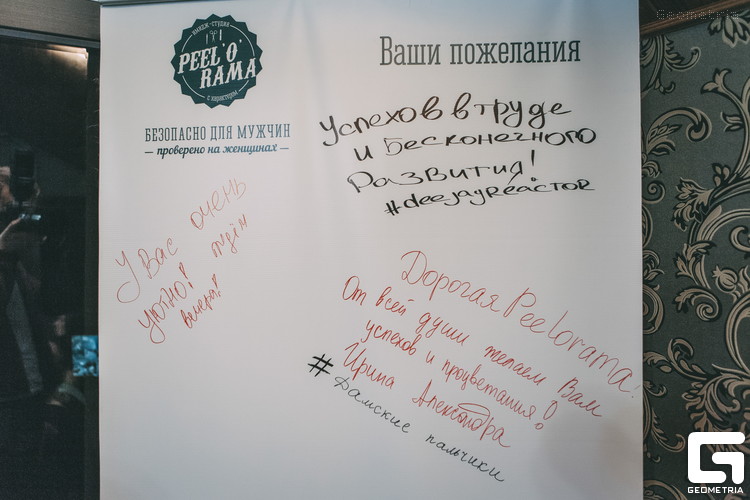 имидж-студия
PEEL'O'
RAMA
с характером
БЕЗОПАСНО ДЛЯ МУЖЧИН
— проверено на женщинах —
Ваши пожелания
Успехов в труде
и Бесконечного
Развития!
#deejayreactor
У Вас очень
уютно! ждём
вечера!
Дорогая Peelorama!
От всей души желаем Вам
успехов и процветания!
Ирина Александра
# Дамские пальчики
Geometria
GEOMETRIA